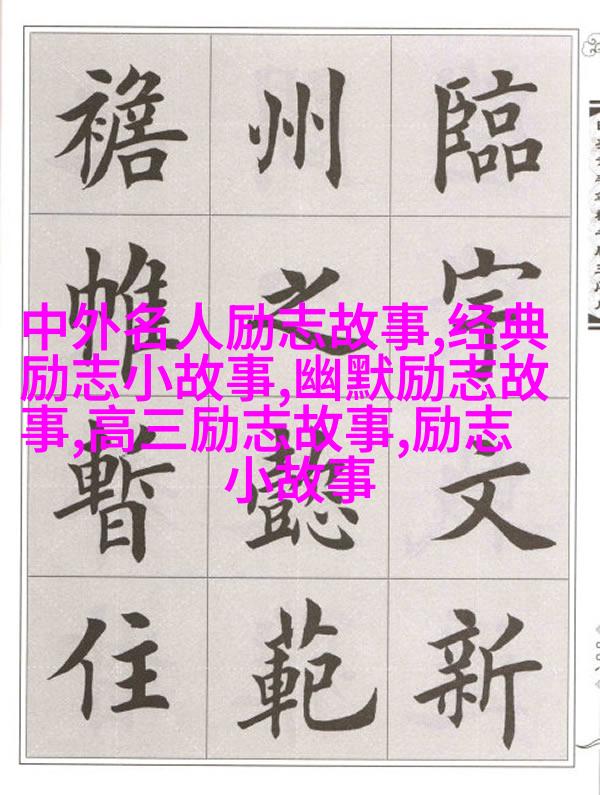 臨宇文新
州之懿範
襜帷暫住
中外名人励志故事,经典
励志小故事,幽默励志故
事,高三励志故事,励志
小故事